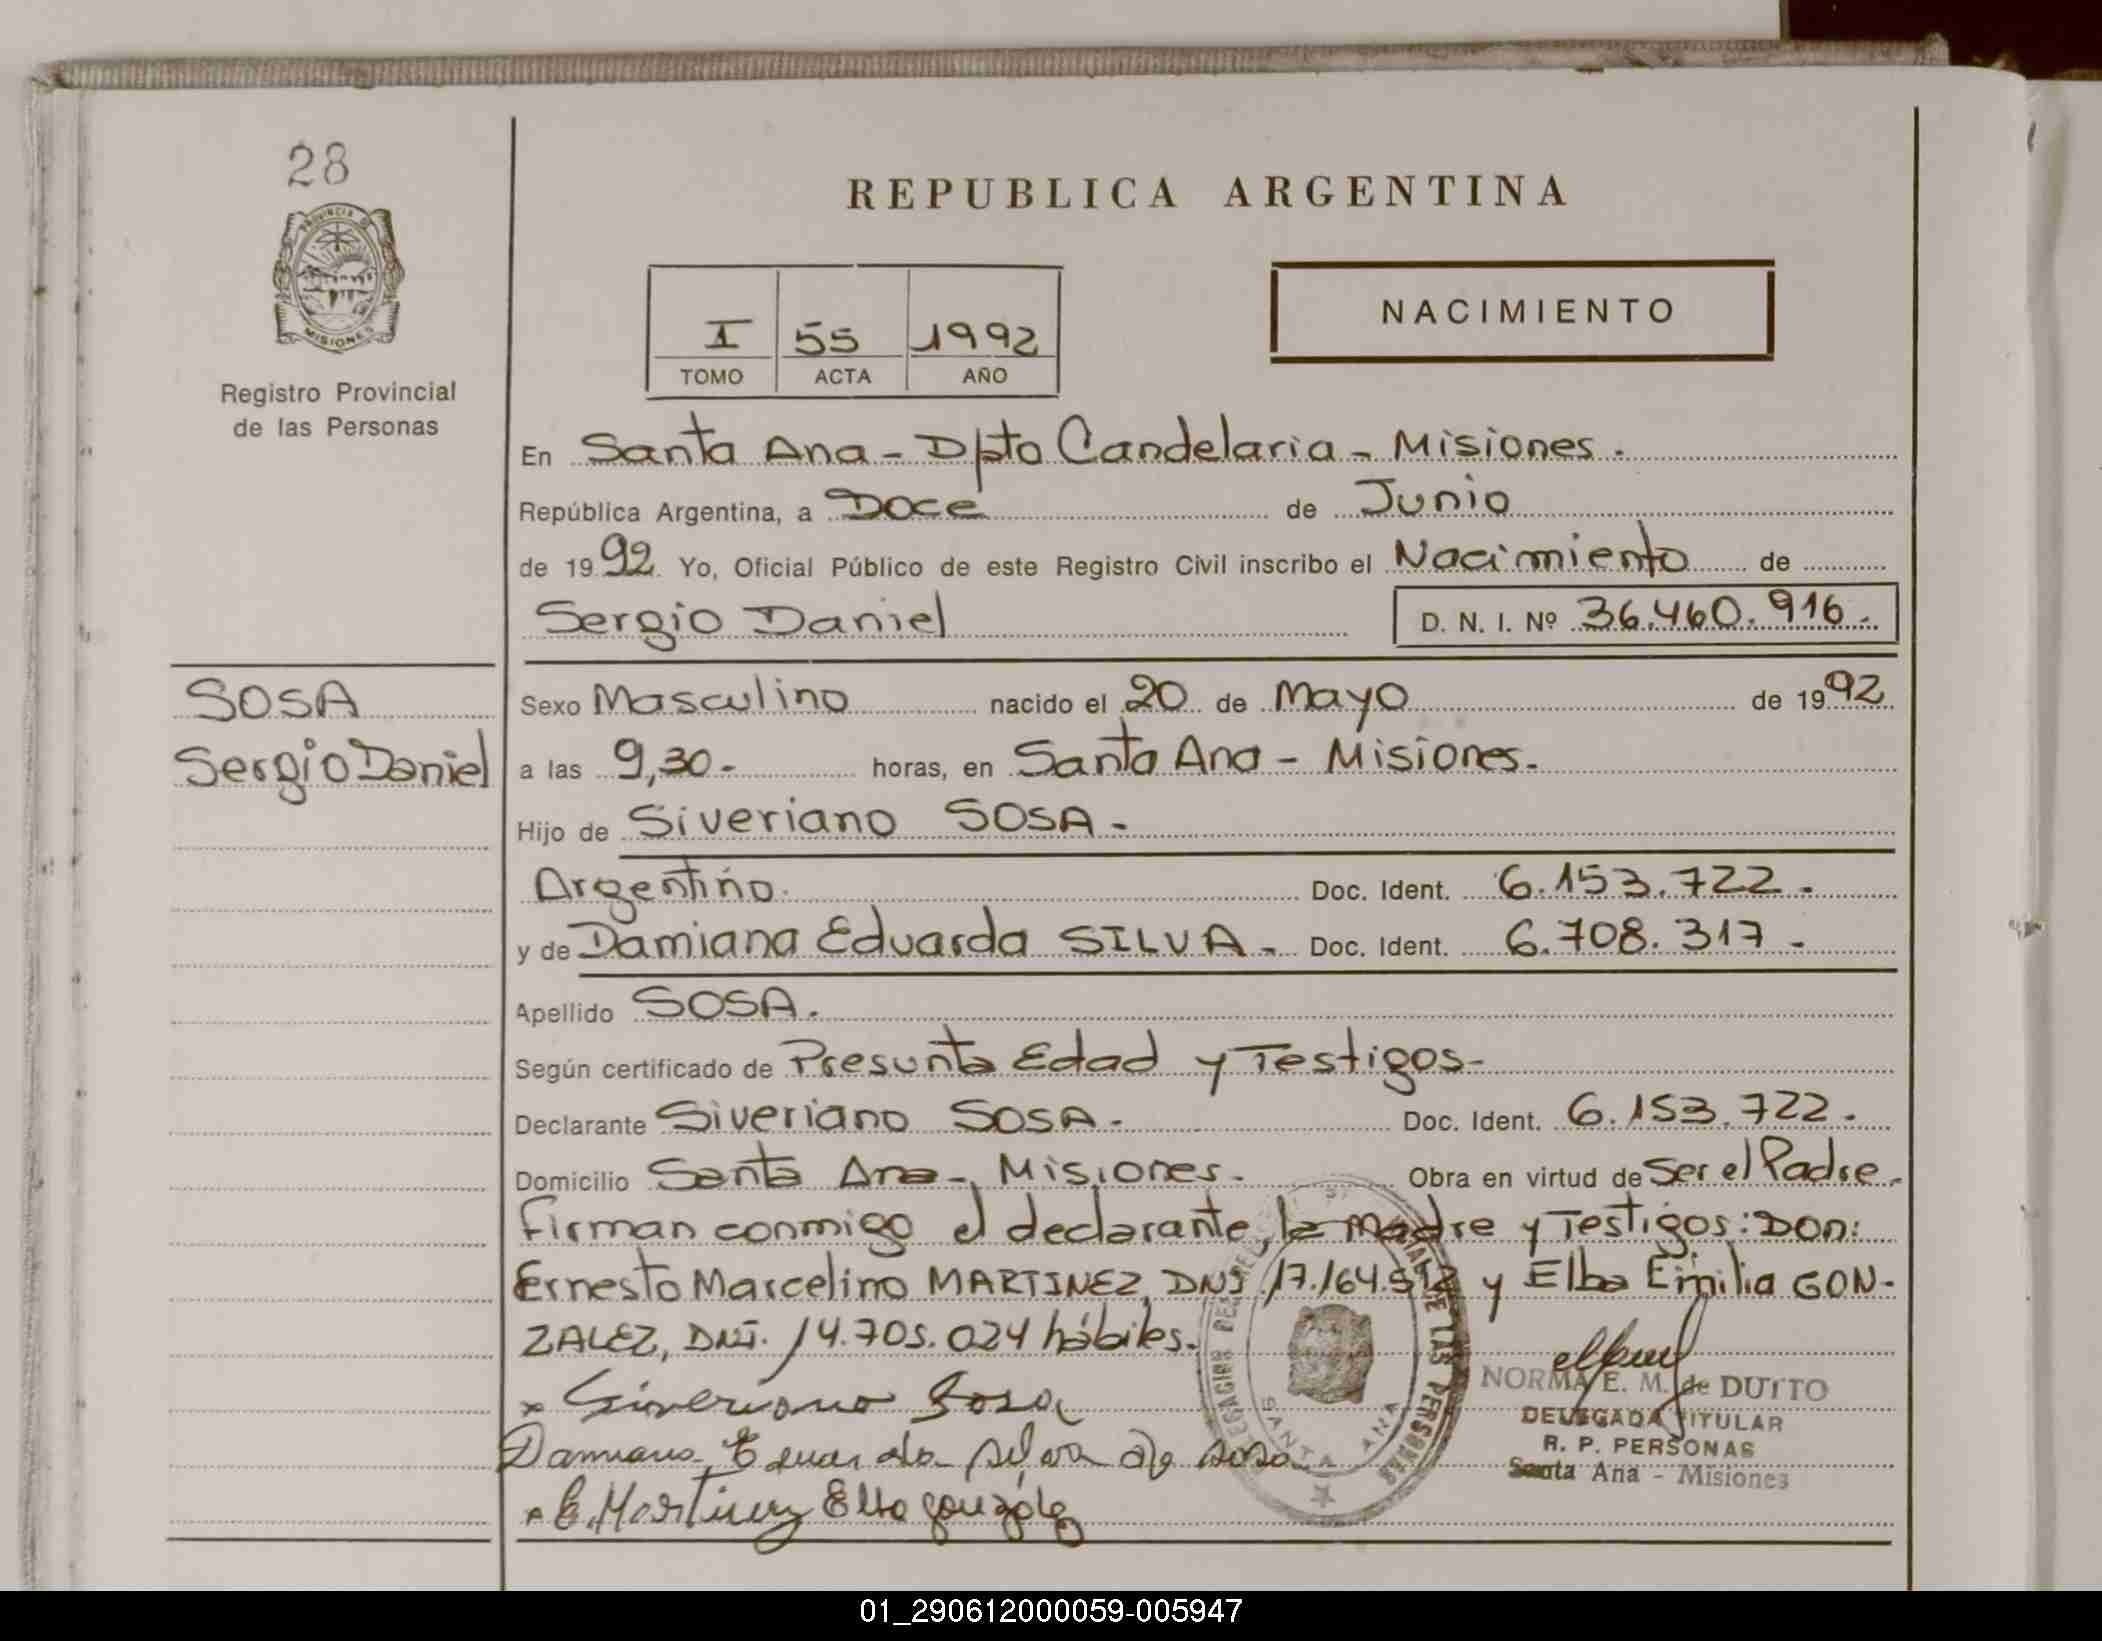 28
PROVINCIA DE
MISIONES
Registro Provincial
de las Personas
REPUBLICA ARGENTINA
I 55 1992
TOMO ACTA AÑO
NACIMIENTO
En Santa Ana - Dpto Candelaria - Misiones.
República Argentina, a Doce de Junio
de 1992. Yo, Oficial Público de este Registro Civil inscribo el Nacimiento de
Sergio Daniel D. N. I. Nº 36.460.916.-
SOSA
Sergio Daniel
Sexo Masculino nacido el 20 de Mayo de 1992
a las 9,30.- horas, en Santa Ana - Misiones.
Hijo de Siveriano SOSA.-
Argentino. Doc. Ident. 6.153.722.-
y de Damiana Eduarda SILVA.- Doc. Ident. 6.708.317.-
Apellido SOSA.
Según certificado de Presunta Edad y Testigos-
Declarante Siveriano SOSA.- Doc. Ident. 6.153.722.-
Domicilio Santa Ana-, Misiones.- Obra en virtud de Ser el Padre.
Firman conmigo el declarante, la Madre y Testigos: DON:
Ernesto Marcelino MARTINEZ, DNI 17.164.512 y Elba Emilia GON-
ZALEZ, DNI. 14.705.024 hábiles.-
x Siveriano Sosa
Damiana Eduarda silva de sosa
E. Martinez Elba gonzález
SANTA ANA
DE LAS PERSONAS
NORMA E. M. de DUTTO
DELEGADA TITULAR
R. P. PERSONAS
Santa Ana - Misiones
01_290612000059-005947